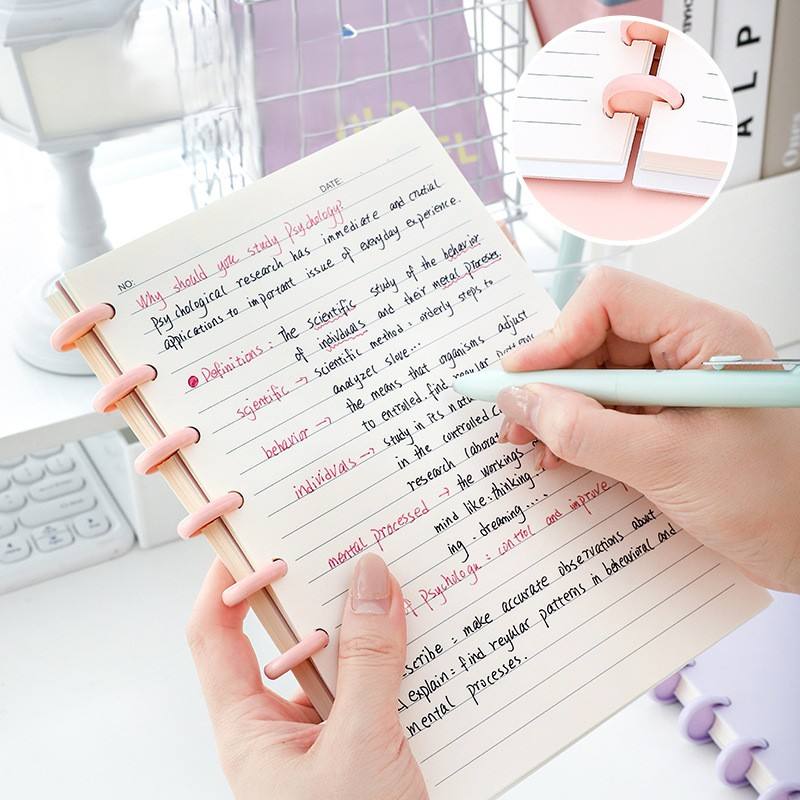 DATE:
NO:
Why should you study Psychology?
Psychological research has immediate and crucial
applications to important issue of everyday experience.
Definitions: the scientific study of the behavior
of individuals and their metal processes.
scientific → scientific method: orderly steps to
analyzel slove...
behavior → the means that organisms adjust
to entrolled.find regular pattern
individuals → study in its natu
in the controlled C
research laborat
mental processed → the workings
mind like: thinking...
ing. dreaming....
of psychology: control and improve
scribe: make accurate observations about
explain: find regular patterns in behavioral and
mental processes.
ALP